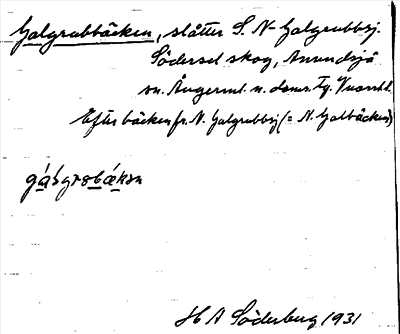 Galgrubbäcken, slåtter S. N-Galgrubbsj.
Södersel skog, Anundsjö
sn. Ångerml. n. doms. Tg.
Efter bäcken fr. N. Galgrubbsj (= N. Galbäcken)
H A Söderberg 1931